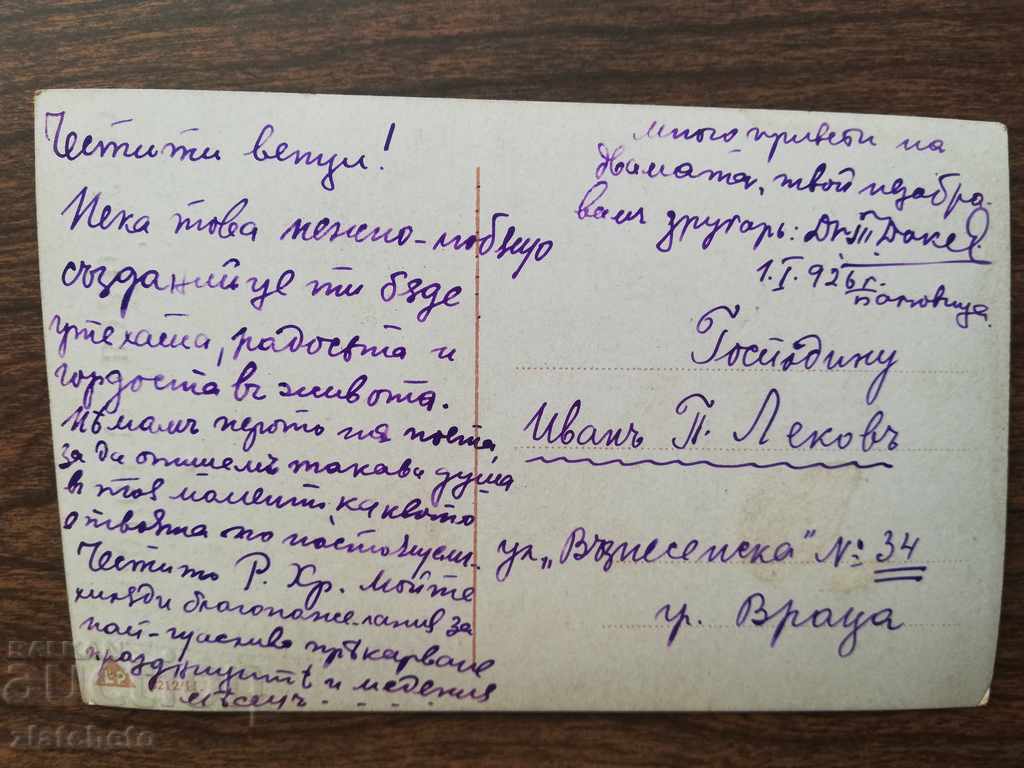 Честити венци!
Нека това нежно-любяще
създанийце ти бѫде
утехата, радостьта и
гордостта въ живота.
Нѣмамъ перото на поета,
за да опишемъ такава душа
въ тоя моментъ каквото
Честито Р. Хр. Мойте
хиляди благопожелания за
най-щастливо прѣкарване
празницитѣ и медения
мѣсецъ . . . .
много привети на
двамата, твой незабра-
вамъ другарь: Dr. Ш Даке
1.I.926 г.
Господину
Иванъ П. Лековъ
ул. „Възнесенска" №: 34
гр. Враца
BALKAN
zlatcheto